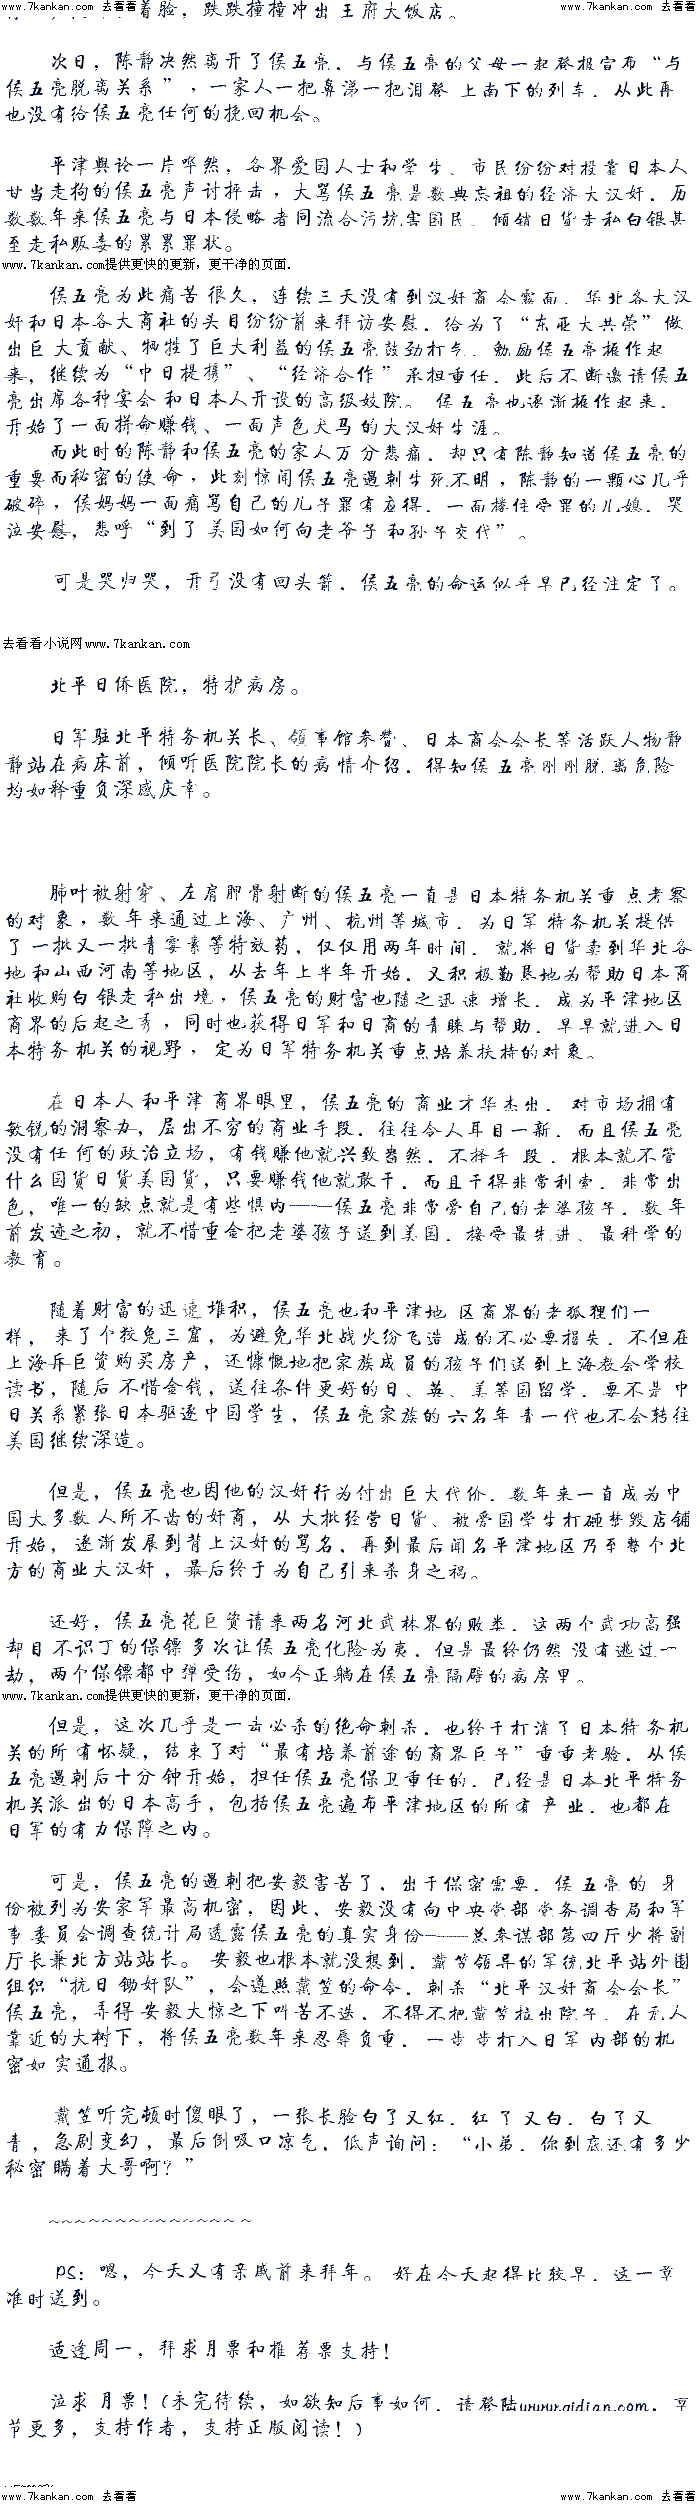 www.7kankan.com 去看看
www.7kankan.com 去看看
着脸，跌跌撞撞冲出王府大饭店。
次日，陈静决然离开了侯五亮，与侯五亮的父母一起登报宣布“与
侯五亮脱离关系”，一家人一把鼻涕一把泪登上南下的列车，从此再
也没有给侯五亮任何的挽回机会。
平津舆论一片哗然，各界爱国人士和学生、市民纷纷对投靠日本人
甘当走狗的侯五亮声讨抨击，大骂侯五亮是数典忘祖的经济大汉奸，历
数数年来侯五亮与日本侵略者同流合污坑害国民、倾销日货走私白银甚
至走私贩毒的累累罪状。
www.7kankan.com提供更快的更新，更干净的页面.
侯五亮为此痛苦很久，连续三天没有到汉奸商会露面，华北各大汉
奸和日本各大商社的头目纷纷前来拜访安慰，给为了“东亚大共荣”做
出巨大贡献、牺牲了巨大利益的侯五亮鼓劲打气，勉励侯五亮振作起
来，继续为“中日提携”、“经济合作”承担重任，此后不断邀请侯五
亮出席各种宴会和日本人开设的高级妓院。 侯五亮也逐渐振作起来，
开始了一面拼命赚钱、一面声色犬马的大汉奸生涯。
而此时的陈静和侯五亮的家人万分悲痛，却只有陈静知道侯五亮的
重要而秘密的使命，此刻惊闻侯五亮遇刺生死不明，陈静的一颗心几乎
破碎，侯妈妈一面痛骂自己的儿子罪有应得，一面搂住受罪的儿媳，哭
泣安慰，悲呼“到了美国如何向老爷子和孙子交代”。
可是哭归哭，开弓没有回头箭，侯五亮的命运似乎早已经注定了。
去看看小说网www.7kankan.com
北平日侨医院，特护病房。
日军驻北平特务机关长、领事馆参赞、日本商会会长等活跃人物静
静站在病床前，倾听医院院长的病情介绍，得知侯五亮刚刚脱离危险
均如释重负深感庆幸。
肺叶被射穿、左肩胛骨射断的侯五亮一直是日本特务机关重点考察
的对象，数年来通过上海、广州、杭州等城市，为日军特务机关提供
了一批又一批青霉素等特效药，仅仅用两年时间，就将日货卖到华北各
地和山西河南等地区，从去年上半年开始，又积极勤恳地为帮助日本商
社收购白银走私出境，侯五亮的财富也随之迅速增长，成为平津地区
商界的后起之秀，同时也获得日军和日商的青睐与帮助，早早就进入日
本特务机关的视野，定为日军特务机关重点培养扶持的对象。
在日本人和平津商界眼里，侯五亮的商业才华杰出，对市场拥有
敏锐的洞察力，层出不穷的商业手段，往往令人耳目一新，而且侯五亮
没有任何的政治立场，有钱赚他就兴致昂然，不择手段，根本就不管
什么国货日货美国货，只要赚钱他就敢干，而且干得非常利索，非常出
色，唯一的缺点就是有些惧内——侯五亮非常爱自己的老婆孩子，数年
前发迹之初，就不惜重金把老婆孩子送到美国，接受最先进、最科学的
教育。
随着财富的迅速堆积，侯五亮也和平津地区商界的老狐狸们一
样，来了个狡兔三窟，为避免华北战火纷飞造成的不必要损失，不但在
上海斥巨资购买房产，还慷慨地把家族成员的孩子们送到上海教会学校
读书，随后不惜金钱，送往条件更好的日、英、美等国留学，要不是中
日关系紧张日本驱逐中国学生，侯五亮家族的六名年青一代也不会转往
美国继续深造。
但是，侯五亮也因他的汉奸行为付出巨大代价，数年来一直成为中
国大多数人所不齿的奸商，从大批经营日货、被爱国学生打砸焚毁店铺
开始，逐渐发展到背上汉奸的骂名，再到最后闻名平津地区乃至整个北
方的商业大汉奸，最后终于为自己引来杀身之祸。
还好，侯五亮花巨资请来两名河北武林界的败类，这两个武功高强
却目不识丁的保镖多次让侯五亮化险为夷，但是最终仍然没有逃过一
劫，两个保镖都中弹受伤，如今正躺在侯五亮隔壁的病房里。
www.7kankan.com提供更快的更新，更干净的页面.
但是，这次几乎是一击必杀的绝命刺杀，也终于打消了日本特务机
关的所有怀疑，结束了对“最有培养前途的商界巨子”重重考验，从侯
五亮遇刺后十分钟开始，担任侯五亮保卫重任的，已经是日本北平特务
机关派出的日本高手，包括侯五亮遍布平津地区的所有产业，也都在
日军的有力保障之内。
可是，侯五亮的遇刺把安毅害苦了，出于保密需要，侯五亮的身
份被列为安家军最高机密，因此，安毅没有向中央党部党务调查局和军
事委员会调查统计局透露侯五亮的真实身份——总参谋部第四厅少将副
厅长兼北方站站长。 安毅也根本就没想到，戴笠领导的军统北平站外围
组织“抗日锄奸队”，会遵照戴笠的命令，刺杀“北平汉奸商会会长”
侯五亮，弄得安毅大惊之下叫苦不迭，不得不把戴笠拉出院子，在无人
靠近的大树下，将侯五亮数年来忍辱负重，一步步打入日军内部的机
密如实通报。
戴笠听完顿时傻眼了，一张长脸白了又红，红了又白，白了又
青，急剧变幻，最后倒吸口凉气，低声询问：“小弟，你到底还有多少
秘密瞒着大哥啊？”
~~~~~~~~~~~~~~~~
PS：嗯，今天又有亲戚前来拜年。 好在今天起得比较早，这一章
准时送到。
适逢周一，拜求月票和推荐票支持！
泣求月票！(未完待续，如欲知后事如何，请登陆www.qidian.com，章
节更多，支持作者，支持正版阅读！)
www.7kankan.com 去看看
www.7kankan.com 去看看